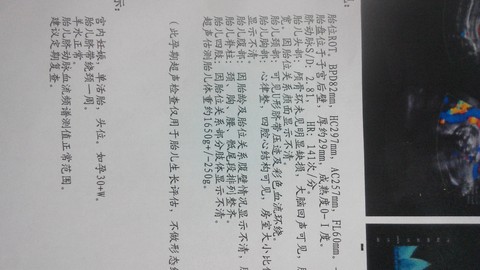 胎位ROT, BPD82mm, HC297mm, AC257mm, FL60mm,
胎盘位于子宫后壁, 厚约29mm, 成熟度0-Ⅰ度。
脐动脉S/D: 2.81, HR: 141次/分
胎儿头部: 颅骨环未见明显缺损, 大脑回声可见,
宽, 因胎位关系颜面显示不清。
胎儿颈部: 可见U形脐带压迹及彩色血流环绕。
胎儿胸部: 心律整, 四腔心结构可见, 房室大小比
显示不清。
胎儿腹部: 因胎龄及胎位关系腹壁情况显示不清,
胎儿脊柱: 颈、胸、腰、骶尾段排列整齐。
胎儿四肢: 因胎位关系部分肢体显示不清。
超声估测胎儿体重约1650g+/-250g。
(此孕期超声检查仅用于胎儿生长评估, 不做形态
示:
宫内妊娠, 单活胎, 头位, 如孕30+W。
胎儿脐带绕颈一周。
羊水正常。
胎儿脐动脉血流频谱测值正常范围。
建议定期复查。